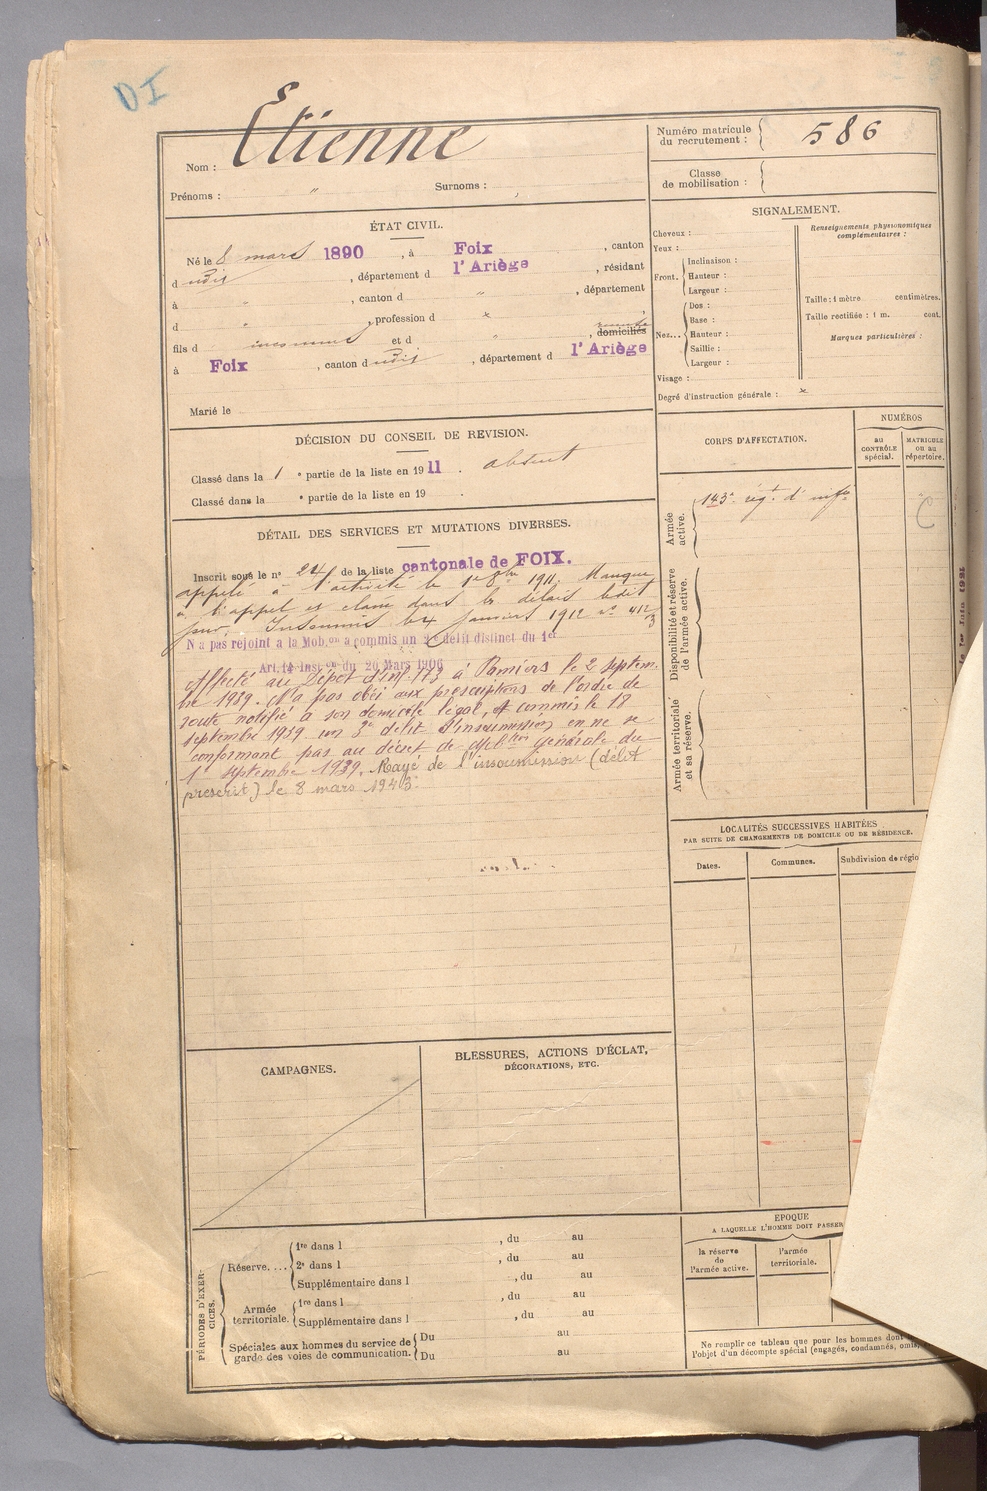 DI
Nom : Etienne
Prénoms : " Surnoms : ,
Numéro matricule du recrutement : 586
Classe de mobilisation :
ÉTAT CIVIL.
Né le 8 mars 1890, à Foix, canton
d udit, département d l'Ariège, résidant
à " , canton d " , département
d " , profession d × ,
fils d inconnu et d , domiciliés
à Foix, canton d udit, département d l'Ariège
Marié le
DÉCISION DU CONSEIL DE REVISION.
Classé dans la 1e partie de la liste en 1911. absent
Classé dans la e partie de la liste en 19 .
DÉTAIL DES SERVICES ET MUTATIONS DIVERSES.
Inscrit sous le no 24 de la liste cantonale de FOIX.
appelé à l'activité le 1er 8bre 1911. Manque
à l'appel et classé dans les délais ledit
jour. Insoumis le 4 Janvier 1912 no 412
3
N'a pas rejoint à la Mob.on a commis un 2e délit distinct du 1er
Art. 14 Inst.on du 20 Mars 1906
Affecté au Dépôt d'Inf. 173 à Pamiers le 2 septem-
bre 1939. N'a pas obéi aux prescriptions de l'ordre de
route notifié à son domicile légal, A commis le 18
septembre 1939 un 3e délit d'insoumission en ne se
conformant pas au décret de Mobtion générale du
1er septembre 1939. Rayé de l'insoumission (délit
prescrit) le 8 mars 1943.
SIGNALEMENT.
Cheveux :
Yeux :
Front. Inclinaison :
Hauteur :
Largeur :
Nez... Dos :
Base :
Hauteur :
Saillie :
Largeur :
Visage :
Degré d'instruction générale : ×
Renseignements physionomiques complémentaires :
Taille : 1 mètre centimètres.
Taille rectifiée : 1 m. cent.
Marques particulières :
CORPS D'AFFECTATION.
NUMÉROS
au CONTRÔLE spécial.
MATRICULE ou au répertoire.
Armée active.
143e rég.t d'infie
Disponibilité et réserve de l'armée active.
Armée territoriale et sa réserve.
LOCALITÉS SUCCESSIVES HABITÉES
PAR SUITE DE CHANGEMENTS DE DOMICILE OU DE RÉSIDENCE.
Dates. Communes. Subdivision de régio
CAMPAGNES.
BLESSURES, ACTIONS D'ÉCLAT,
DÉCORATIONS, ETC.
PÉRIODES D'EXERCICES.
Réserve.... 1re dans l , du au
2e dans l , du au
Supplémentaire dans l , du au
Armée territoriale. 1re dans l , du au
Supplémentaire dans l , du au
Spéciales aux hommes du service de garde des voies de communication. Du au
Du au
EPOQUE
A LAQUELLE L'HOMME DOIT PASSER
la réserve de l'armée active.
l'armée territoriale.
Ne remplir ce tableau que pour les hommes dont
l'objet d'un décompte spécial (engagés, condamnés, omis,